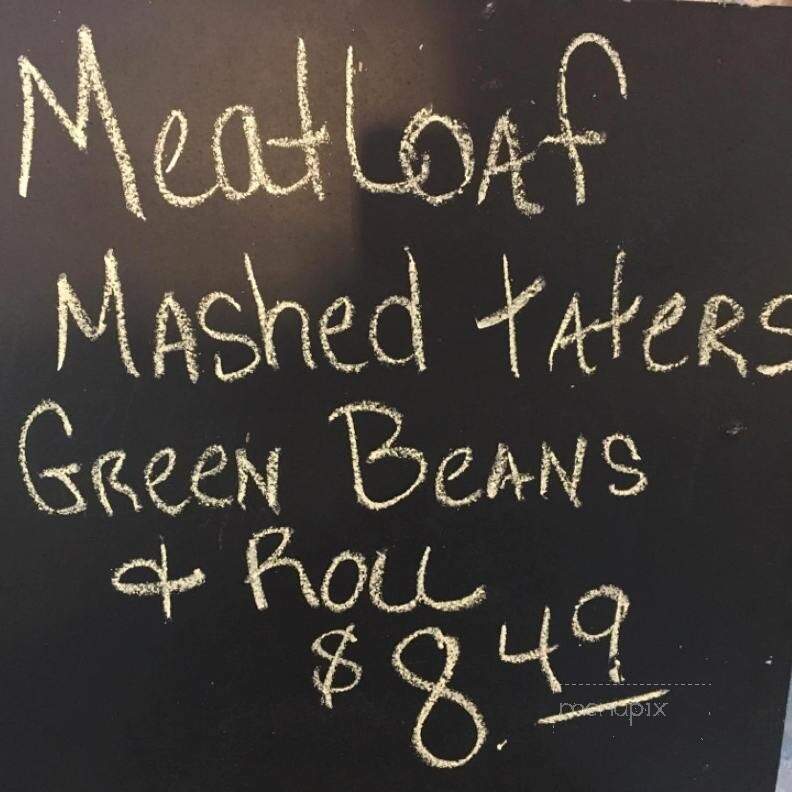 MeatLoAf
MAShed tAteRS
GReeN BeANS
& Roll
$8.49
menupix